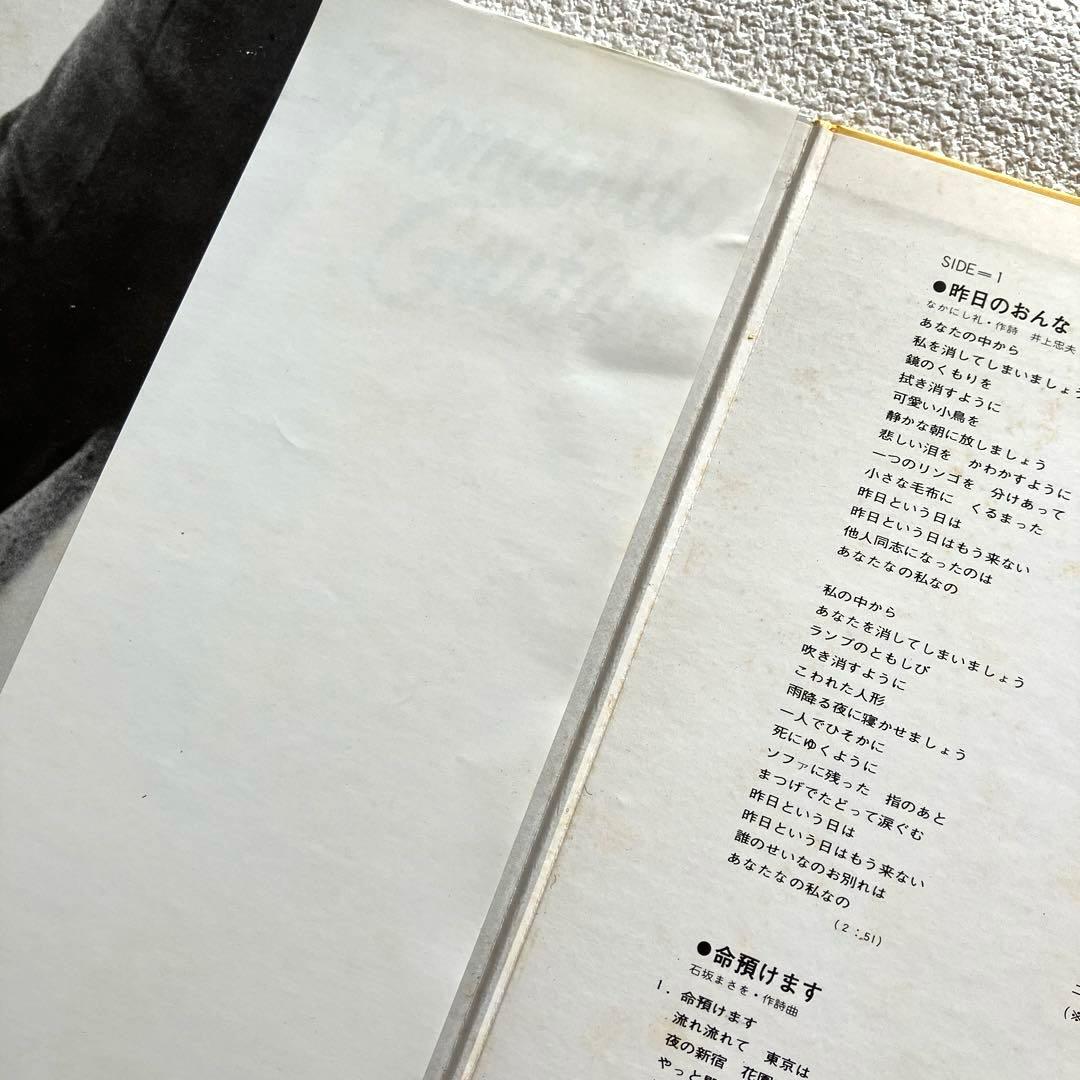 Romantic
SIDE=1
●昨日のおんな
なかにし礼・作詩 井上忠夫
あなたの中から
私を消してしまいましょう
鏡のくもりを
拭き消すように
可愛い小鳥を
静かな朝に放しましょう
悲しい泪を かわかすように
一つのリンゴを 分けあって
小さな毛布に くるまった
昨日という日は
昨日という日はもう来ない
他人同志になったのは
あなたなの私なの
私の中から
あなたを消してしまいましょう
ランプのともしび
吹き消すように
こわれた人形
雨降る夜に寝かせましょう
一人でひそかに
死にゆくように
ソファに残った 指のあと
まつげでたどって涙ぐむ
昨日という日は
昨日という日はもう来ない
誰のせいなのお別れは
あなたなの私なの
(2:51)
●命預けます
石坂まさを・作詩曲
1. 命預けます
流れ流れて 東京は
夜の新宿 花園
やっと